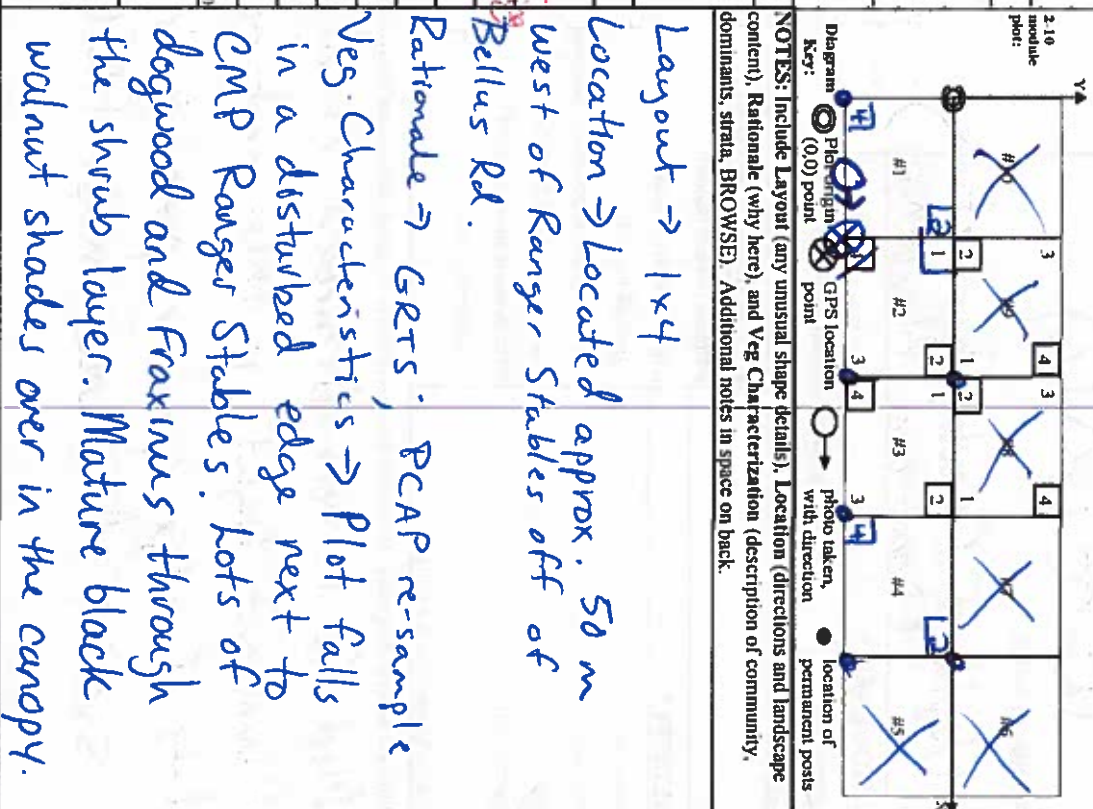 2-10
module
plot:
Y
#10
3
#9
4
3
#8
4
#7
#6
2
1
2
1
L2
1
2
1
2
L3
#1
#2
#3
#4
#5
4
3
4
3
4
Diagram
Key:
Plot origin
(0,0) point
GPS location
point
photo taken,
with direction
location of
permanent posts
NOTES: Include Layout (any unusual shape details), Location (directions and landscape
content), Rationale (why here), and Veg Characterization (description of community,
dominants, strata, BROWSE). Additional notes in space on back.
Layout → 1x4
Location → Located approx. 50 m
west of Ranger Stables off of
Bellus Rd.
Rationale → GRTS, PCAP re-sample
Veg. Characteristics → Plot falls
in a disturbed edge next to
CMP Ranger Stables. Lots of
dogwood and Fraxinus through
the shrub layer. Mature black
walnut shades over in the canopy.